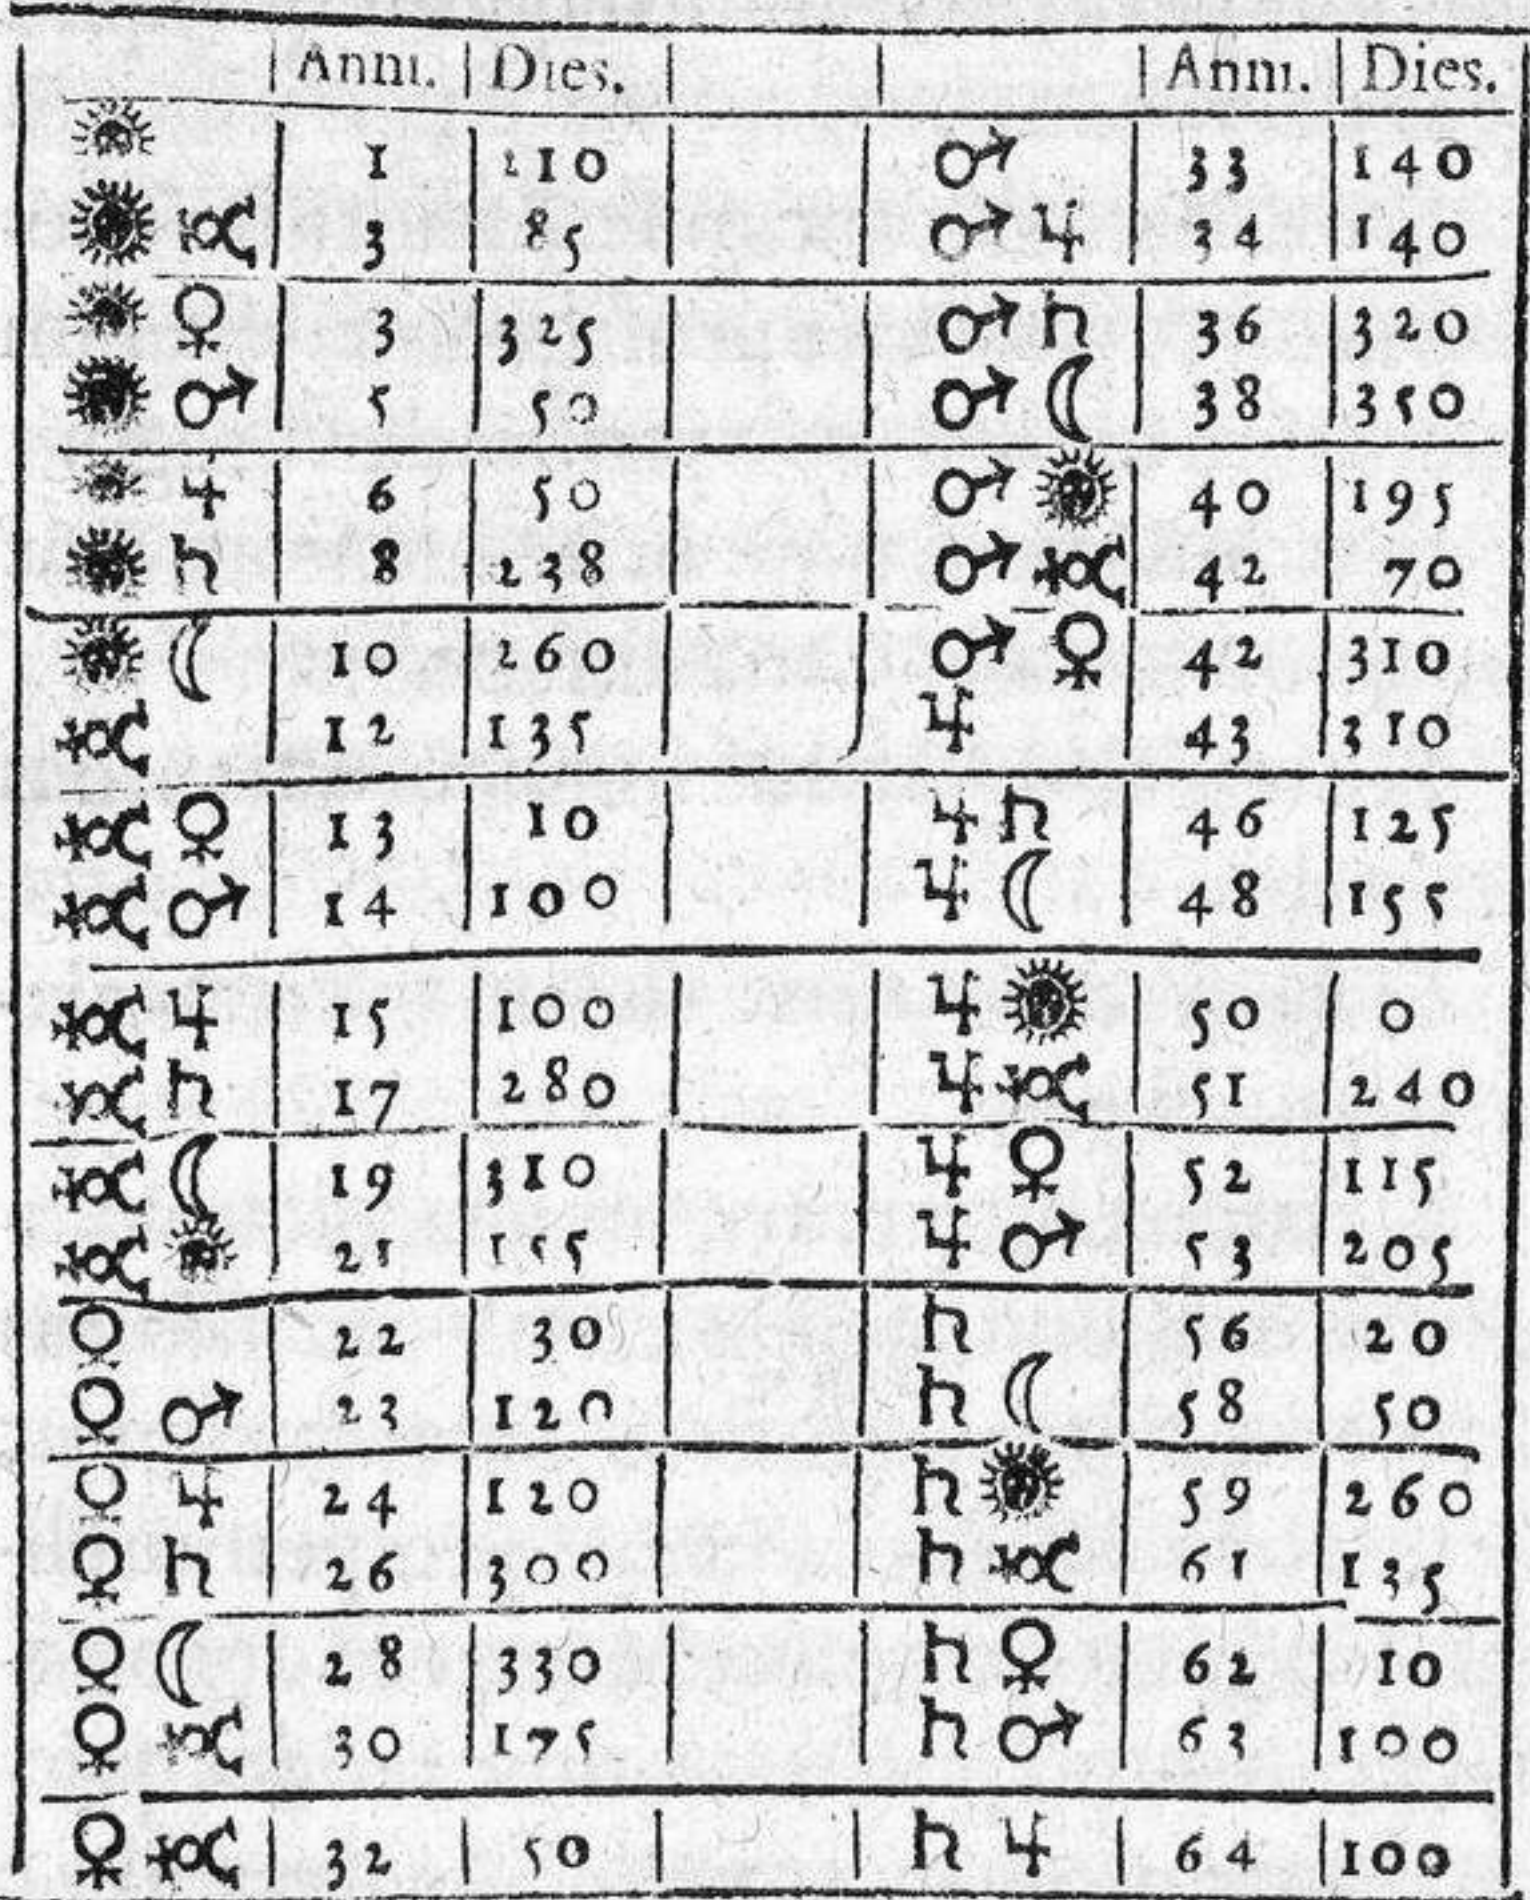 Anni. Dies. Anni. Dies.
☉ 1 210 ♂ 33 140
☉ ☿ 3 85 ♂ ♃ 34 140
☉ ♀ 3 325 ♂ ♄ 36 320
☉ ♂ 5 50 ♂ ☾ 38 350
☉ ♃ 6 50 ♂ ☉ 40 195
☉ ♄ 8 238 ♂ ☿ 42 70
☉ ☾ 10 260 ♂ ♀ 42 310
☿ 12 135 ♃ 43 310
☿ ♀ 13 10 ♃ ♄ 46 125
☿ ♂ 14 100 ♃ ☾ 48 155
☿ ♃ 15 100 ♃ ☉ 50 0
☿ ♄ 17 280 ♃ ☿ 51 240
☿ ☾ 19 310 ♃ ♀ 52 115
☿ ☉ 21 155 ♃ ♂ 53 205
♀ 22 30 ♄ 56 20
♀ ♂ 23 120 ♄ ☾ 58 50
♀ ♃ 24 120 ♄ ☉ 59 260
♀ ♄ 26 300 ♄ ☿ 61 135
♀ ☾ 28 330 ♄ ♀ 62 10
♀ ☿ 30 175 ♄ ♂ 63 100
♀ ☿ 32 50 ♄ ♃ 64 100